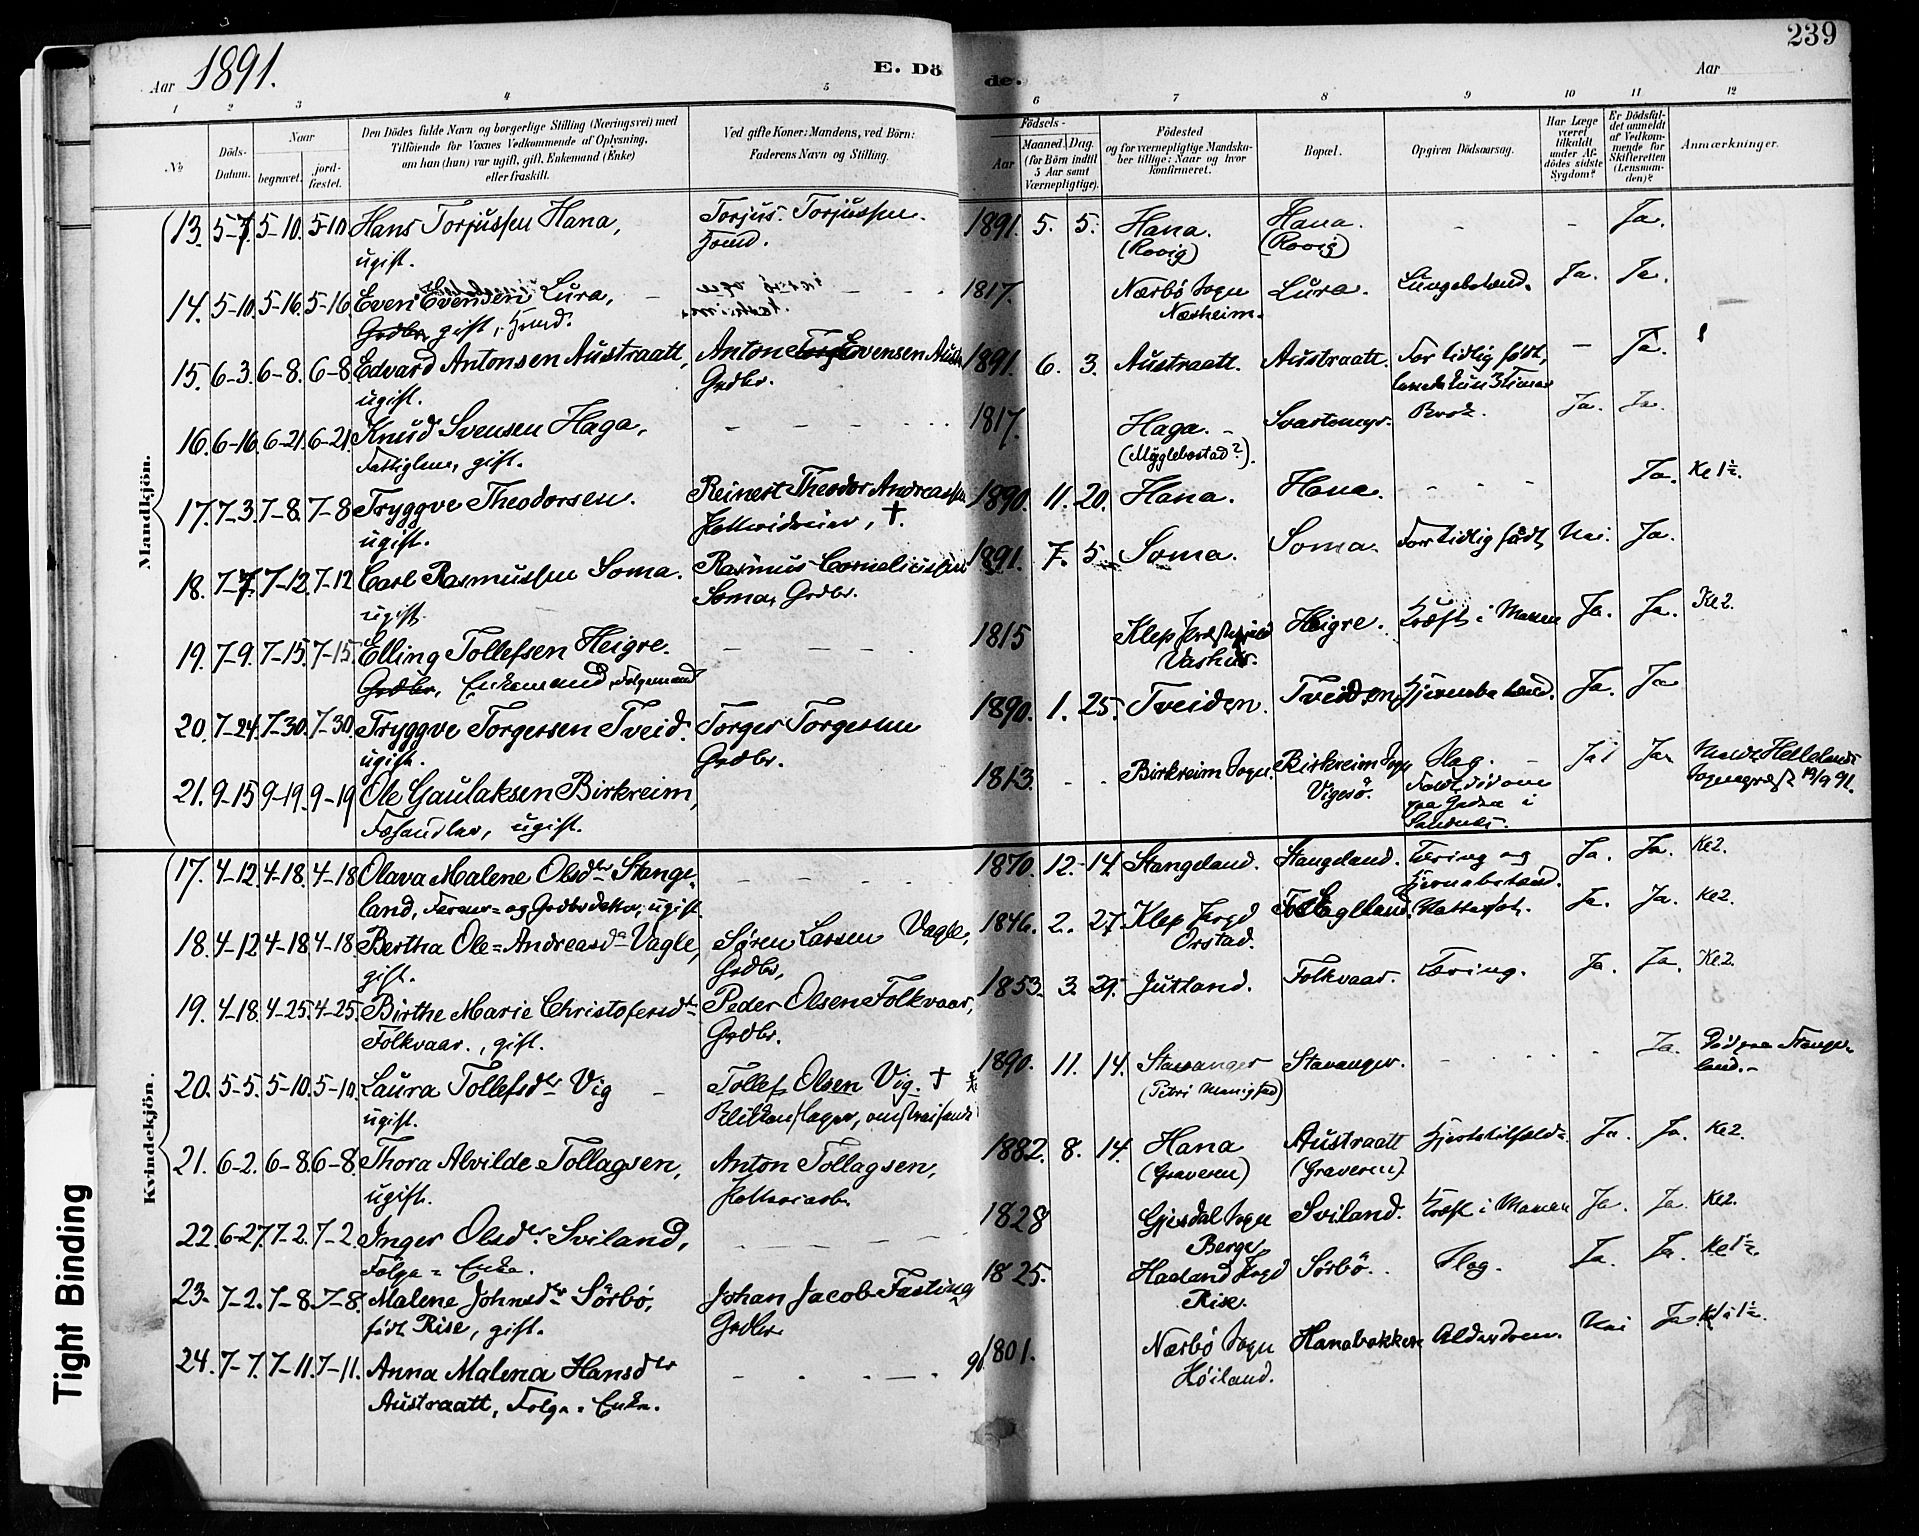 1891.
E. Dö de.
239
Aar
Aar
1 2 3 4 5 6 7 8 9 10 11 12
No
Döds-Datum.
Naar
begravet.
jord-fæstet.
Den Dödes fulde Navn og borgerlige Stilling (Næringsvei) med
Tilföiende for Voxnes Vedkommende af Oplysning,
om han (hun) var ugift, gift, Enkemand (Enke)
eller fraskilt.
Ved gifte Koner: Mandens, ved Börn:
Faderens Navn og Stilling.
Födsels-
Aar
Maaned. Dag.
(for Börn indtil
5 Aar samt
Værnepligtige).
Födested
og for værnepligtige Mandska-
ber tillige: Naar og hvor
konfirmeret.
Bopæl.
Opgiven Dödsaarsag.
Har Læge
været
tilkaldt
under Af-
dödes sidste
Sygdom?
Er Dödsfal-
det anmeldt
af Vedkom-
mende for
Skifteretten
(Lensman-
den)?
Anmærkninger.
Mandkjön.
13. 5-7. 5-10. 5-10 Hans Torjussen Hana, Torjus Torjussen 1891. 5. 5. Hana. Hana. - - Ja.
ugift. (Rovig) (Rovig)
14. 5-10. 5-16. 5-16 Even Evensen Lura, 1817. Nærbø Sogn Lura. Lungebetænd. Ja. Ja.
Grdbr. gift, Næsheim.
15. 6-3. 6-8. 6-8. Edvard Antonsen Austraatt, Anton Evensen 1891. 6. 3. Austraatt. Austraatt. For tidlig født, - Ja.
ugift. Grdbr. levede kun 3 Timer
16. 6-16. 6-21. 6-21. Knud Svensen Haga, 1817. Haga. Svartemyr. Brok. Ja. Ja.
Fattiglem, gift. (Myglebostad?).
17. 7-3. 7-8. 7-8 Tryggve Theodorsen. Reinert Theodor Andreassen 1890. 11. 20. Hana. Hana. - Ja. Kr 1½.
ugift. †.
18. 7-7. 7-12. 7-12 Carl Rasmussen Soma. Rasmus Corneliussen 1891. 7. 5. Soma. Soma. For tidlig født, Nei. Ja.
ugift. Soma, Grdbr.
19. 7-9. 7-15. 7-15. Elling Tollefsen Heigre. 1815 Klep Heigre. Kræft i Maven Ja. Ja. Kr 2.
Grdbr, Enkemand, Folgemand Vashus.
20. 7-24. 7-30. 7-30. Tryggve Torgersen Tveid. Torger Torgersen 1890. 1. 25. Tveiden. Tveiden. Hjernebetænd. Ja. Ja
ugift. Grdbr.
21. 9-15 9-19. 9-19 Ole Gaulaksen Birkreim, 1813. - - Birkreim Sogn. Birkreim Sogn Slag. Ja! Ja. Hellelands
Fæhandler, ugift. Vigesø. Faldt død om Sogneprest 19/9 91.
paa Gaden i
Sandnes.
Kvindekjön.
17. 4-12. 4-18. 4-18. Olava Malene Olsdtr Stange- 1870. 12. 14. Stangeland. Stangeland. Tæring og Ja. Ja. Kr 2.
land, ugift. Hjernebetænd.
18. 4-12. 4-18. 4-18. Bertha Ole-Andreasd. Vagle, Søren Larsen Vagle, 1846. 2. 27. Klep Ja. Ja. Kr 2.
gift. Grdbr, Orstad.
19. 4-18. 4-25. 4-25. Birthe Marie Christofersdtr Peder Olsen Folkvaar, 1853. 3. 29. Jutland. Folkvaar. Tæring. Ja. Ja. Kr 2.
Folkvaar., gift. Grdbr.
20. 5-5. 5-10. 5-10. Laura Tollefsdtr Vig Tollef Olsen Vig. † 1890. 11. 14. Stavanger Stavanger. - Ja. Død paa Stange-
ugift. Blikkenslager, omstreifende (Petri Menighed) land.-
21. 6-2. 6-8. 6-8. Thora Alvilde Tollagsen, Anton Tollagsen, 1882. 8. 14. Hana Austraatt Hjertetilfælde Ja. Ja. Kr 2.
ugift. (Graveren) (Graveren)
22. 6-27. 7-2. 7-2. Inger Olsdtr Sviland, 1828 Gjesdal Sogn Sviland. Kræft i Maven Ja. Ja. Kr 2.
Folge-Enke. Berge.
23. 7-2. 7-8. 7-8. Malene Johnsdtr Sörbö, Johan Jacob Fasting 1825. Haaland Sörbö. Slag. Ja. Ja. Kr 1½.
født Rise, gift. Grdbr. Rise.
24. 7-7. 7-11. 7-11. Anna Malena Hansdtr 1801. Nærbö Sogn Hanabakken Alderdom. Nei Ja.
Austraatt, Folge-Enke. Høiland.
Tight Binding